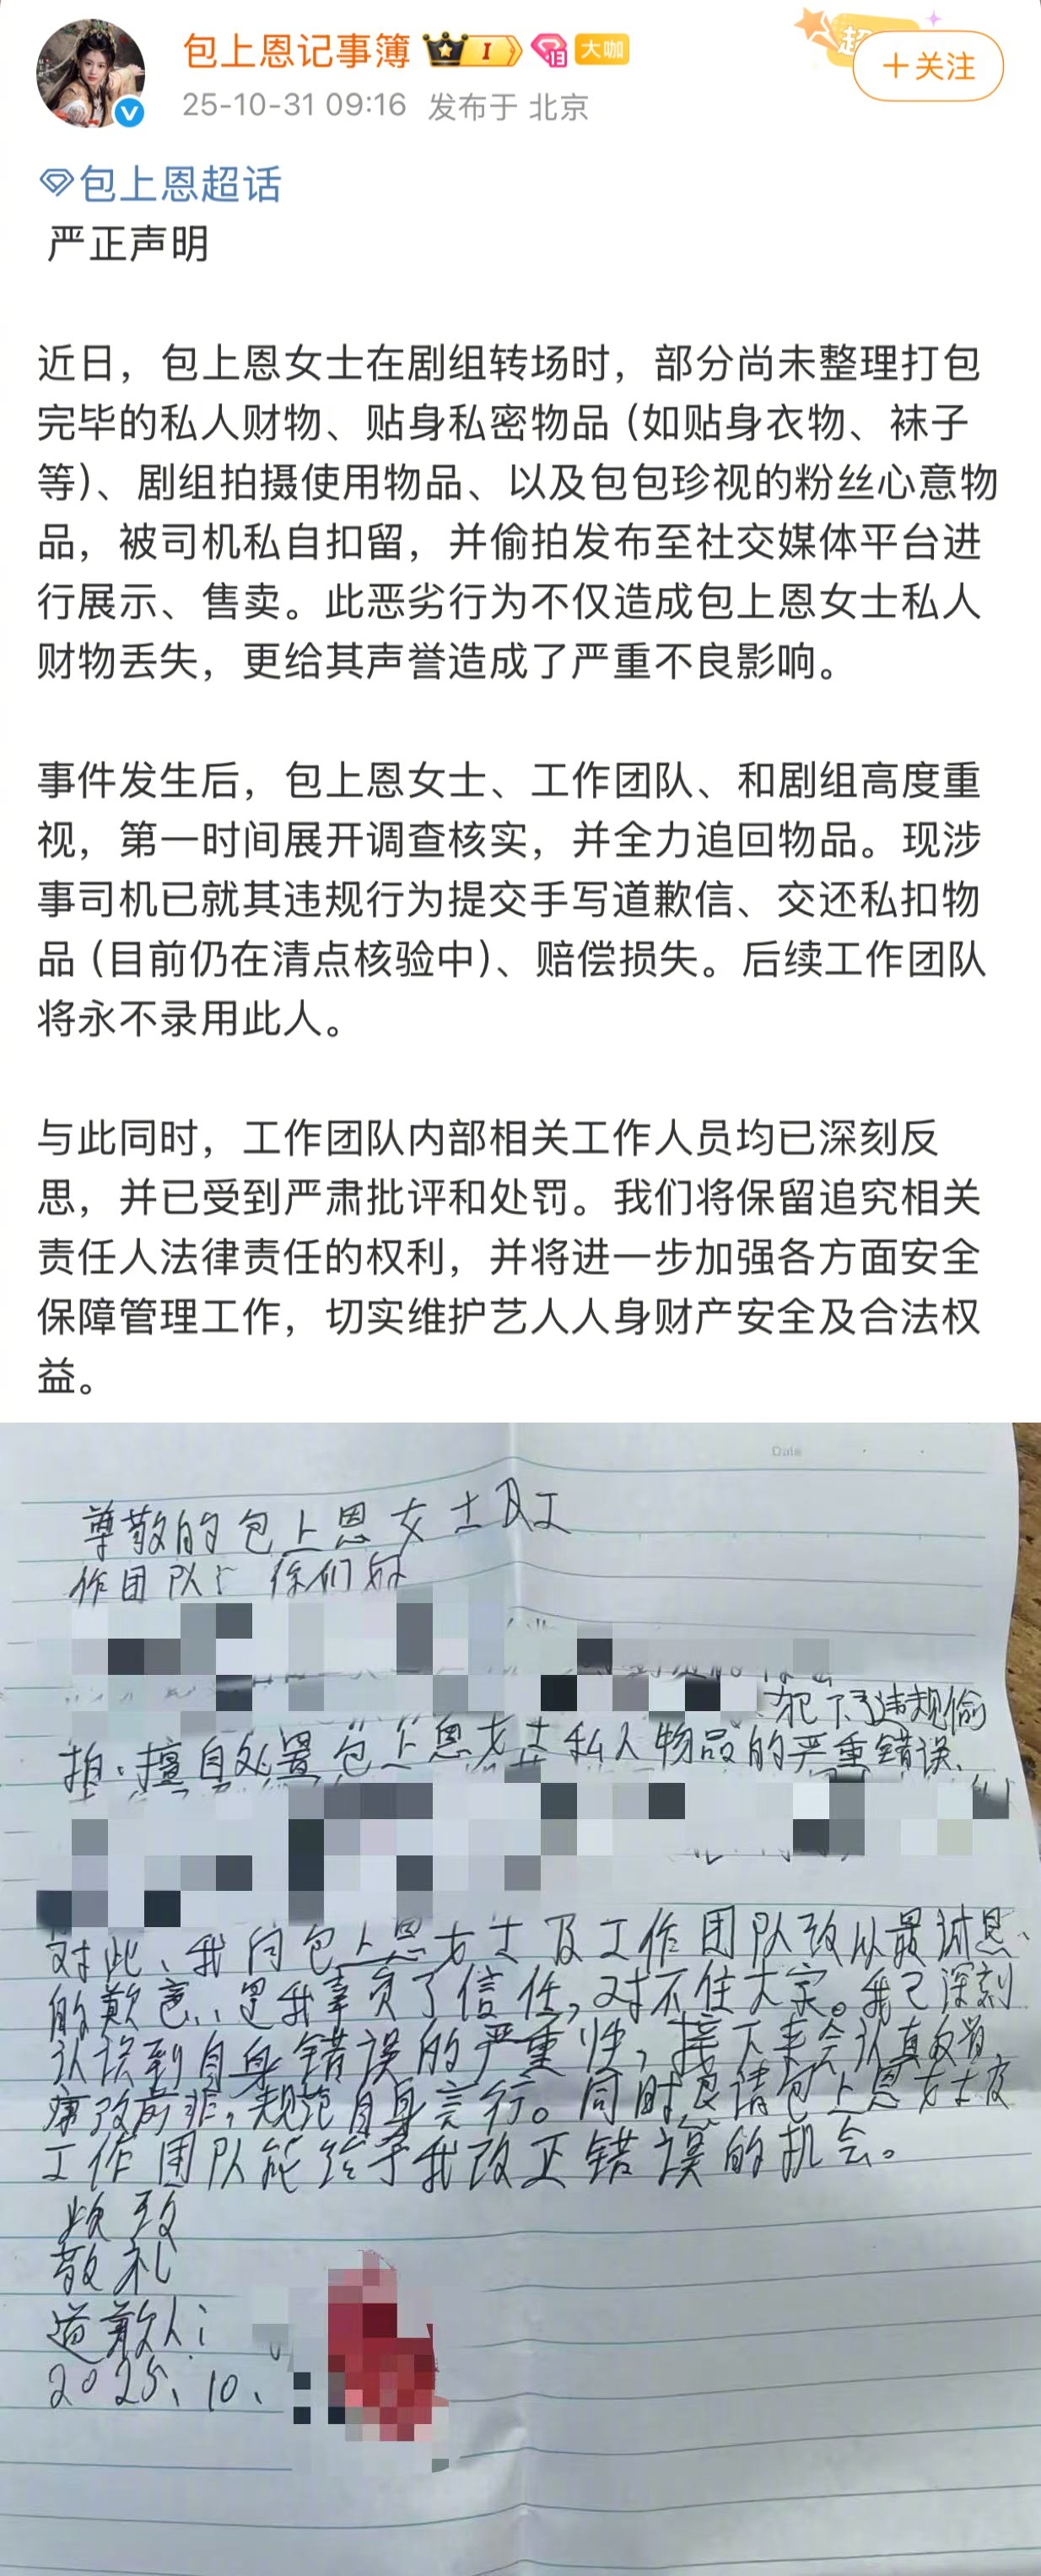 包上恩记事簿
I
大咖
超
+关注
25-10-31 09:16 发布于 北京
包上恩超话
严正声明
近日，包上恩女士在剧组转场时，部分尚未整理打包
完毕的私人财物、贴身私密物品（如贴身衣物、袜子
等）、剧组拍摄使用物品、以及包包珍视的粉丝心意物
品，被司机私自扣留，并偷拍发布至社交媒体平台进
行展示、售卖。此恶劣行为不仅造成包上恩女士私人
财物丢失，更给其声誉造成了严重不良影响。
事件发生后，包上恩女士、工作团队、和剧组高度重
视，第一时间展开调查核实，并全力追回物品。现涉
事司机已就其违规行为提交手写道歉信、交还私扣物
品（目前仍在清点核验中）、赔偿损失。后续工作团队
将永不录用此人。
与此同时，工作团队内部相关工作人员均已深刻反
思，并已受到严肃批评和处罚。我们将保留追究相关
责任人法律责任的权利，并将进一步加强各方面安全
保障管理工作，切实维护艺人人身财产安全及合法权
益。
Date
尊敬的包上恩女士及工
作团队：你们好
犯下了违规偷
拍、擅自处置包上恩女士私人物品的严重错误、
对此、我向包上恩女士及工作团队致以最诚恳、
的歉意，是我辜负了信任，对不住大家。我已深刻
认识到自身错误的严重性，接下来会认真反省
痛改前非，规范自身言行。同时恳请包上恩女士及
工作团队能给予我改正错误的机会。
敬礼
道歉人：
2025、10、